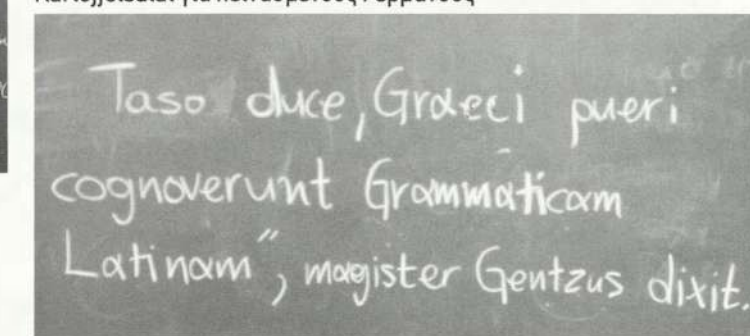 Taso duce, Graeci pueri
cognoverunt Grammaticam
Latinam”, magister Gentzus dixit.